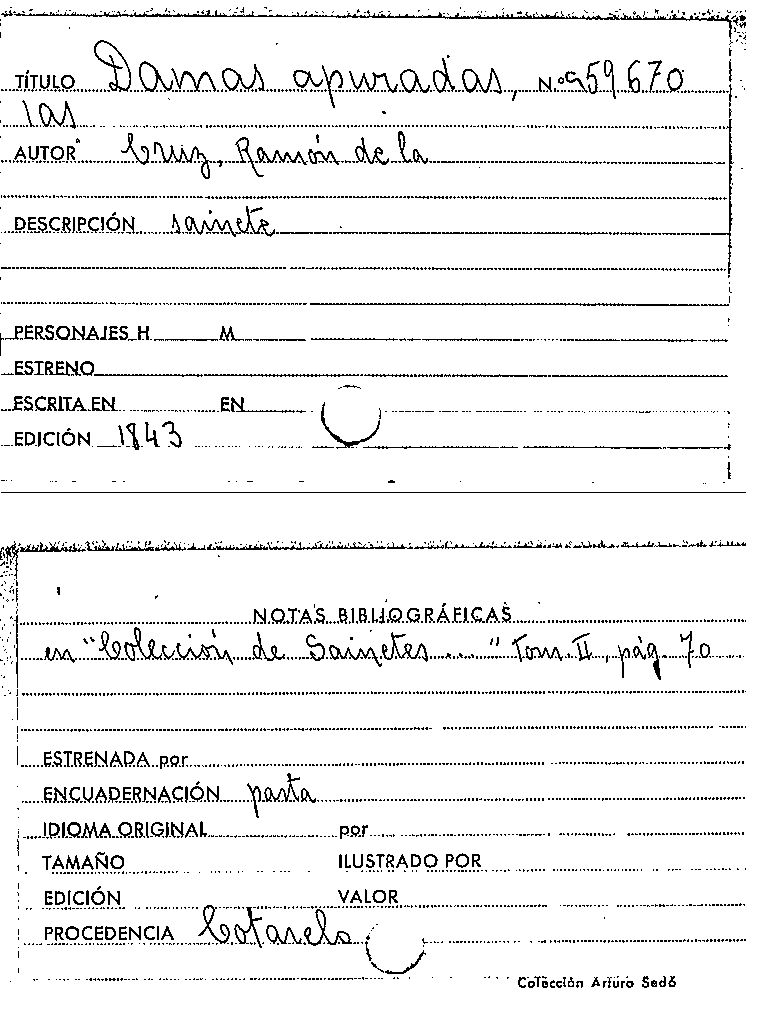 TÍTULO Damas apuradas, N.º 59670
las
AUTOR Cruz, Ramón de la
DESCRIPCIÓN sainete
PERSONAJES H M
ESTRENO
ESCRITA EN EN
EDICIÓN 1843
NOTAS BIBLIOGRÁFICAS
en "Colección de Sainetes..." Tom. II, pág. 70
ESTRENADA por
ENCUADERNACIÓN pasta
IDIOMA ORIGINAL por
TAMAÑO ILUSTRADO POR
EDICIÓN VALOR
PROCEDENCIA Cotarelo
Colección Arturo Sedó